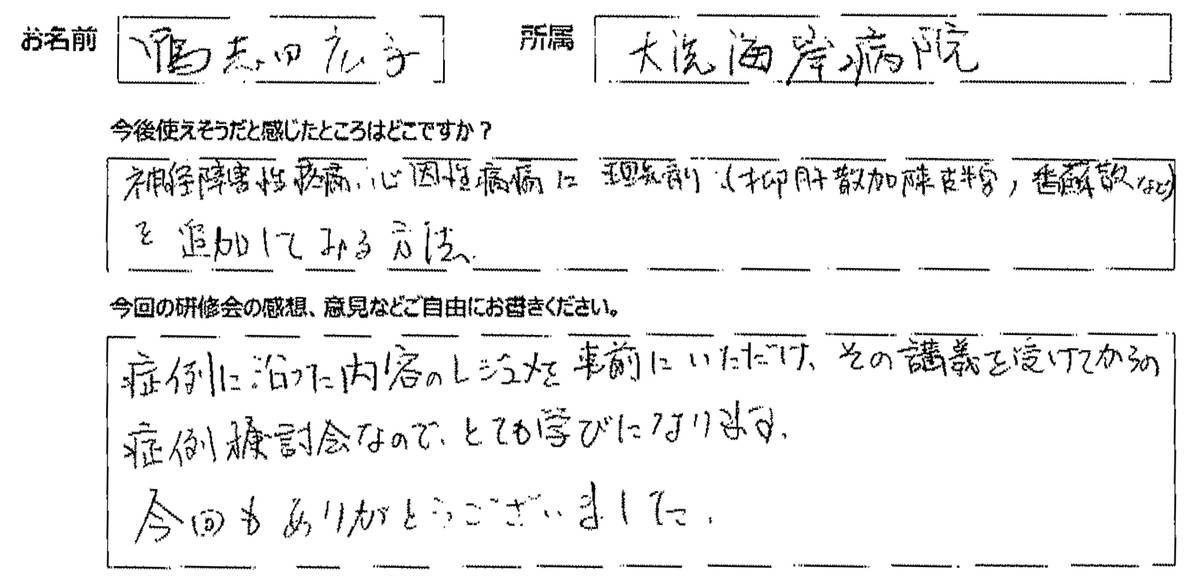 お名前 志田広子 所属 大洗海岸病院
今後使えそうだと感じたところはどこですか？
神経障害性疼痛、心因性疼痛に理気剤（抑肝散加陳皮半夏，香蘇散など）
を追加してみる方法。
今回の研修会の感想、意見などご自由にお書きください。
症例に沿った内容のレジュメを事前にいただけ、その講義を受けてからの
症例検討会なので、とても学びになります。
今回もありがとうございました。